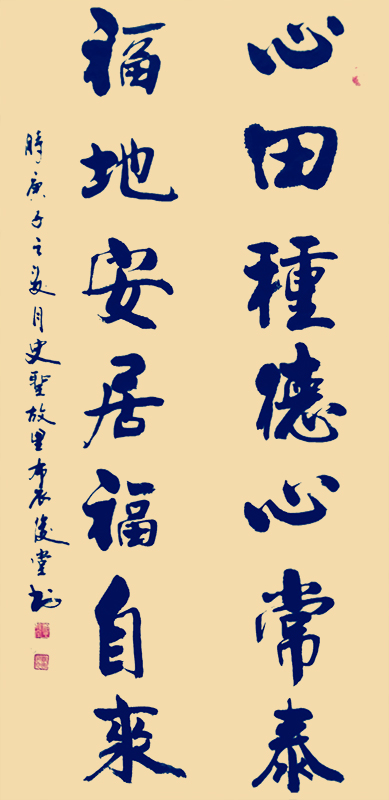 心田種德心常泰
福地安居福自来
時庚子之夏月史聖故里布衣俊堂書